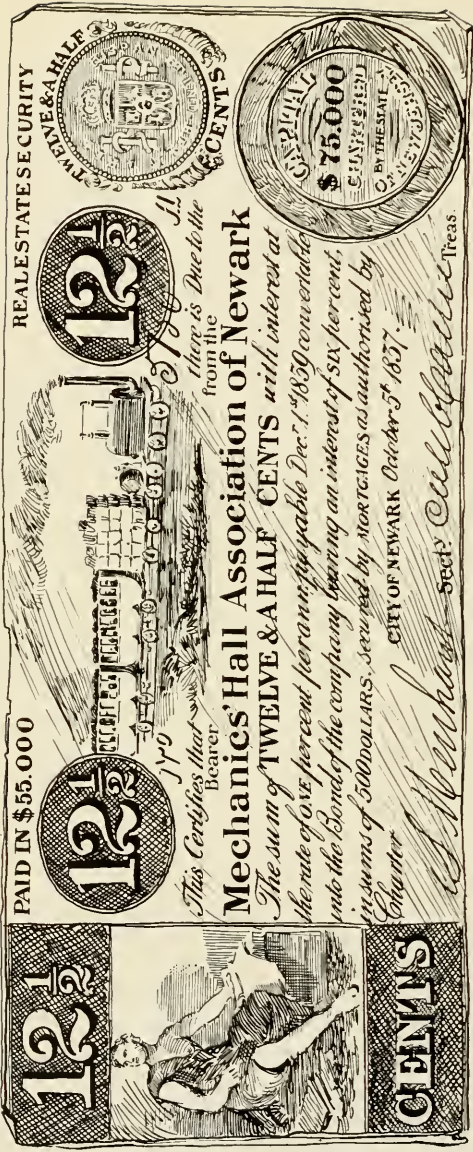 12½
CENTS
PAID IN $55.000
REAL ESTATE SECURITY
12½
12½
TWELVE & A HALF
CENTS
CAPITAL
$75.000
CHARTERED
BY THE STATE
OF NEW JERSEY
This Certifies that there is Due to the
Bearer from the
Mechanics' Hall Association of Newark
The sum of TWELVE & A HALF CENTS with interest at
the rate of ONE percent per annum payable Dec. 1st 1839 convertable
into the Bonds of the company bearing an interest of SIX percent,
in sums of 500 DOLLARS, secured by MORTGAGES as authorised by
Charter CITY OF NEWARK October 5th 1837.
Secty
Treas.